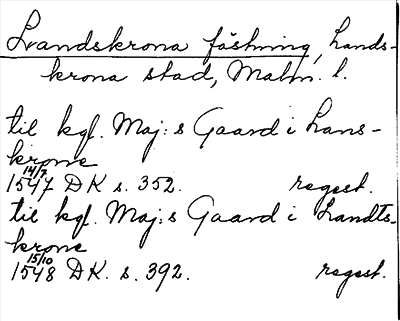 Landskrona fästning, Lands-
krona stad, Malm. l.
til kgl. Maj:s Gaard i Lans-
krone
14/7
1547 DK s. 352. regest.
til kgl. Maj:s Gaard i Landts-
krone
15/10
1548 DK. s. 392. regest.